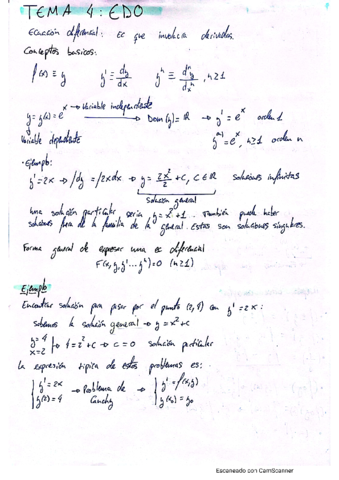 TEMA 4: EDO
Ecuación diferencial: Ec que involucra derivadas.
Conceptos basicos:
f(x) ≡ y    y' ≡ dy/dx    yⁿ ≡ dⁿy/dxⁿ, n≥1
y = y(x) = eˣ → Variable independiente → Dom(y) = ℝ → y' = eˣ orden 1
Variable dependiente    yⁿ⁾ = eˣ, n≥1 orden n
- Ejemplo:
y' = 2x → ∫dy = ∫2xdx → y = 2x²/2 + C, C∈ℝ    soluciones infinitas
Solución general
Una solución particular sería y = x² + 1. También puede haber
soluciones fuera de la familia de la general. Estas son soluciones singulares.
Forma general de expresar una ec diferencial
F(x, y, y' ... yⁿ) = 0 (n≥1)
Ejemplo
Encontrar solución para pasar por el punto (2,4) con y' = 2x:
sabemos la solución general → y = x² + c
y = 4
x = 2 } → 4 = 2² + c → c = 0 solución particular
la expresión típica de estos problemas es:
{ y' = 2x → Problema de → { y' = f(x,y)
{ y(2) = 4    Cauchy    { y(x₀) = y₀
Escaneado con CamScanner